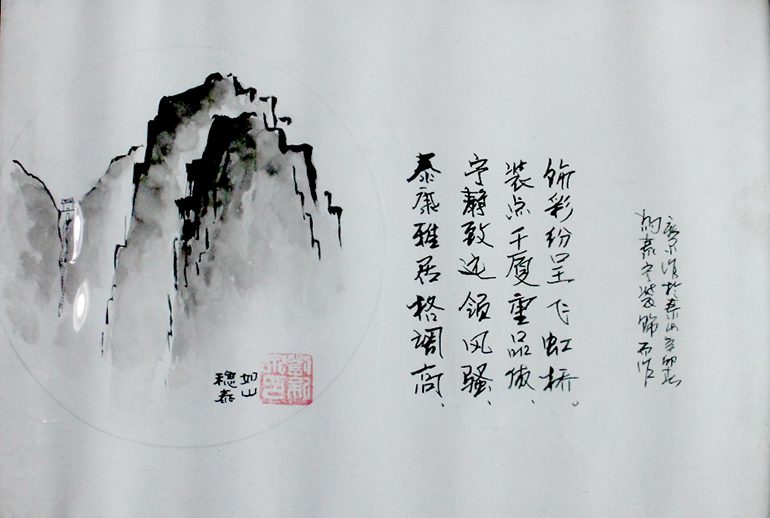 穩泰
如山
泰康雅居格调高、
宁静致远领风骚、
装点千厦重品
饰彩纷呈飞虹桥。
为泰宁装饰而作
作於泰山辛卯